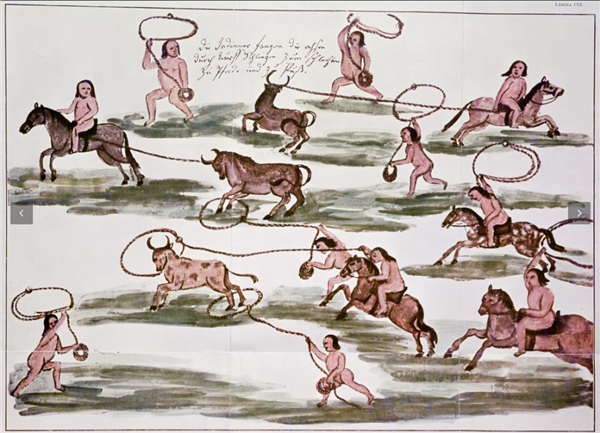 LÁMINA CIX
Die Indianer fangen die ochsen
durch wurff Schlingen Zum schlachten
Zu Pferde und Zu Fuß.